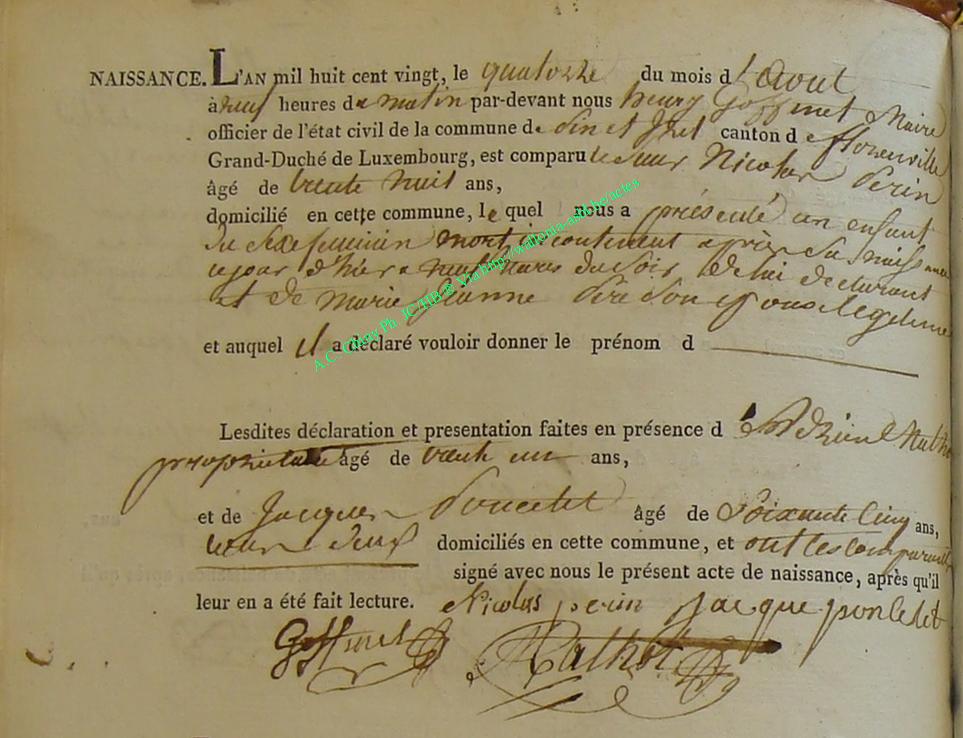 NAISSANCE. L'AN mil huit cent vingt, le quatorze du mois d'aout
à neuf heures du matin par-devant nous henry Goffinet Maire
officier de l'état civil de la commune de canton de florenville
Grand-Duché de Luxembourg, est comparu le sieur Nicolas Perin
âgé de trente huit ans,
domicilié en cette commune, le quel nous a présenté un enfant
du sexe feminin mort incontinent après sa naissance
le jour d'hier a neuf heures du soir de lui declarant
et de marie Jeanne son epouse legitime
et auquel il a déclaré vouloir donner le prénom d
Lesdites déclaration et presentation faites en présence d
propriétaire âgé de trente un ans,
et de Jacques Poncelet âgé de soixante cinq ans,
tous deux domiciliés en cette commune, et ont les comparants
signé avec nous le présent acte de naissance, après qu'il
leur en a été fait lecture. Nicolas perin jacque ponselet
Goffinet Mathot
A.C. Chiny Ph. JC/HB © Via http://wallonia-asbl.be/actes